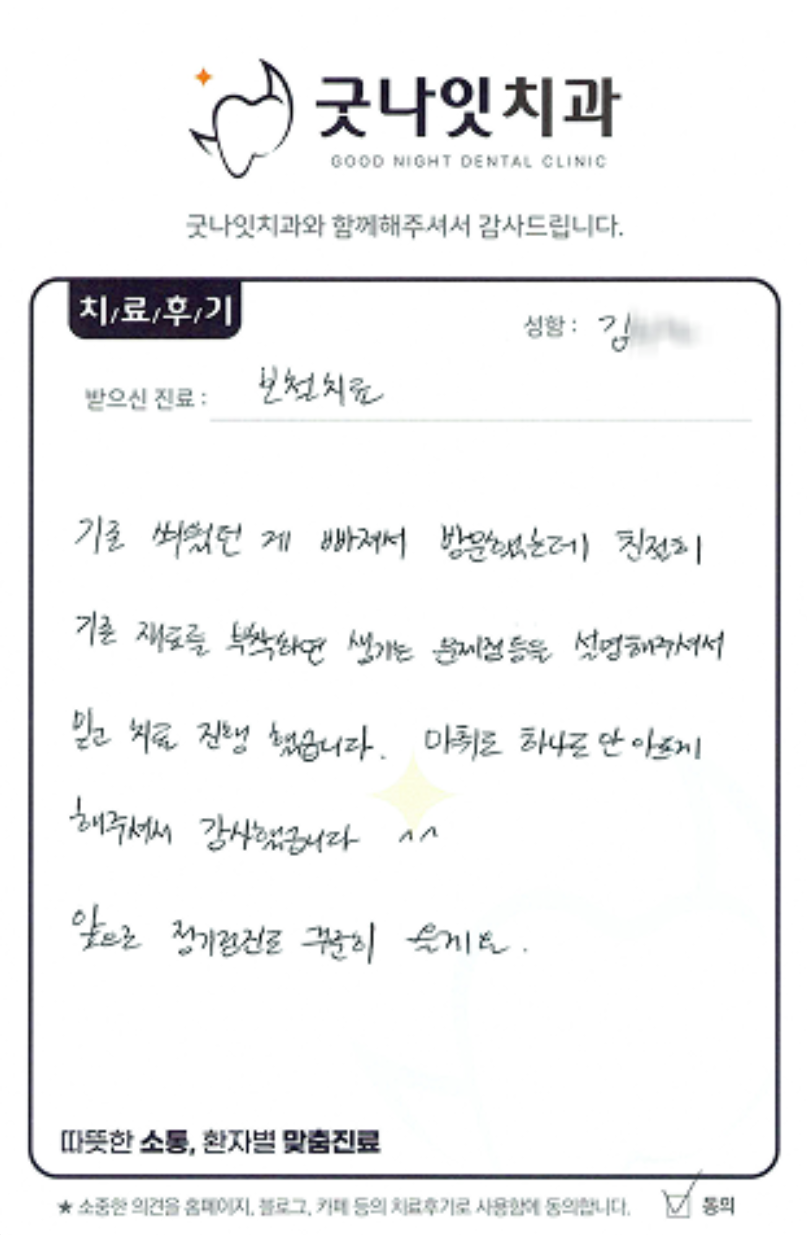 굿나잇치과
GOOD NIGHT DENTAL CLINIC
굿나잇치과와 함께해주셔서 감사드립니다.
치/료/후/기
성함 : 김
받으신 진료 : 보철치료
기존 씌웠던 게 빠져서 방문했는데 친절히
기존 재료를 부착하면 생기는 문제점들을 설명해주셔서
믿고 치료 진행 했습니다. 마취도 하나도 안 아프게
해주셔서 감사했습니다 ^^
앞으로 정기검진도 꾸준히 올게요.
따뜻한 소통, 환자별 맞춤진료
★ 소중한 의견을 홈페이지, 블로그, 카페 등의 치료후기로 사용함에 동의합니다. ☑ 동의